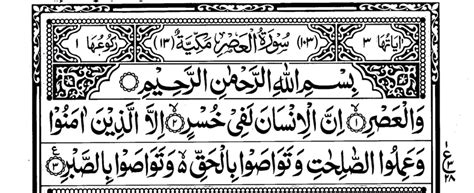 اٰیَاتُهَا ٣ (١٠٣) سُوْرَةُ الْعَصْرِ مَكِّيَّةٌ (١٣) رُكُوْعُهَا ١
بِسْمِ اللّٰهِ الرَّحْمٰنِ الرَّحِيْمِ
وَالْعَصْرِ ١ اِنَّ الْاِنْسَانَ لَفِيْ خُسْرٍ ٢ اِلَّا الَّذِيْنَ اٰمَنُوْا
وَعَمِلُوا الصّٰلِحٰتِ وَتَوَاصَوْا بِالْحَقِّ ۵ وَتَوَاصَوْا بِالصَّبْرِ ٣ ع
١
ع
٢٨